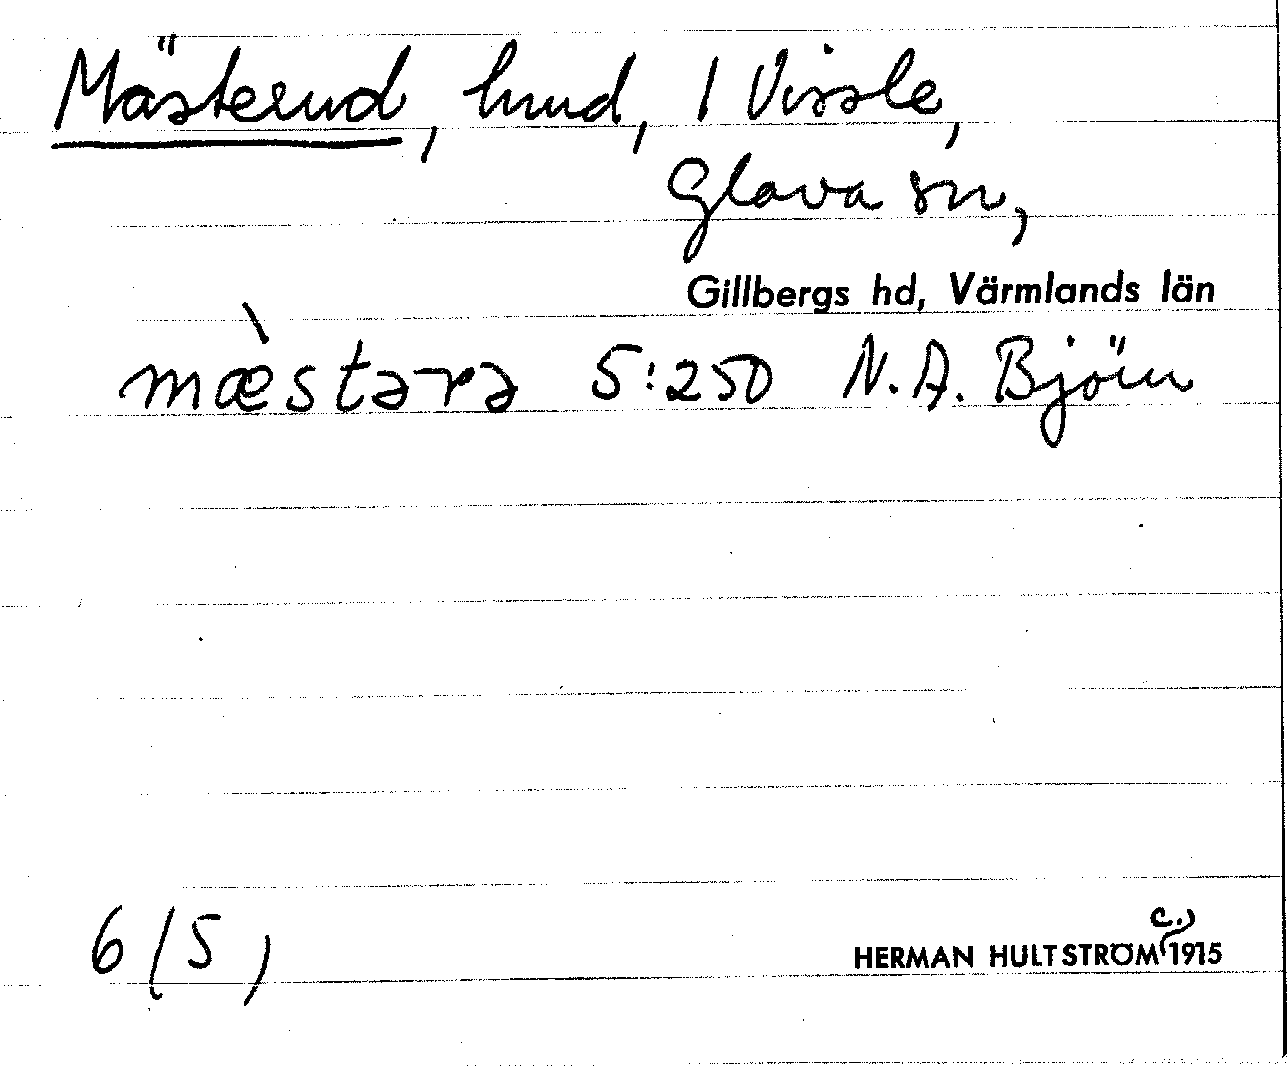 Mästerud, hmd, 1 Vissle,
Glava sn,
Gillbergs hd, Värmlands län
mæ̀stərə 5:250 N. A. Björn
6 (5)
c.)
HERMAN HULTSTRÖM 1915